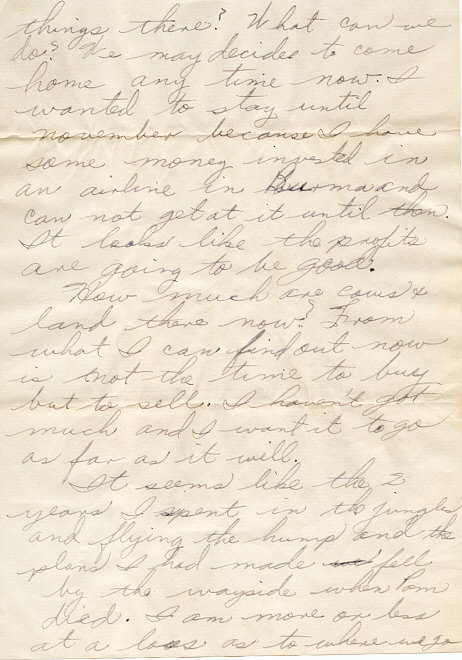 things there? What can we
do? We may decide to come
home any time now. I
wanted to stay until
november because I have
some money invested in
an airline in Burma and
can not get at it until then.
It looks like the profits
are going to be good.
How much are cows &
land there now? From
what I can find out now
is not the time to buy
but to sell. I haven't got
much and I want it to go
as far as it will.
It seems like the 2
years I spent in the jungles
and flying the hump and the
plans I had made fell
by the wayside when Pam
died. I am more or less
at a loss as to where we go